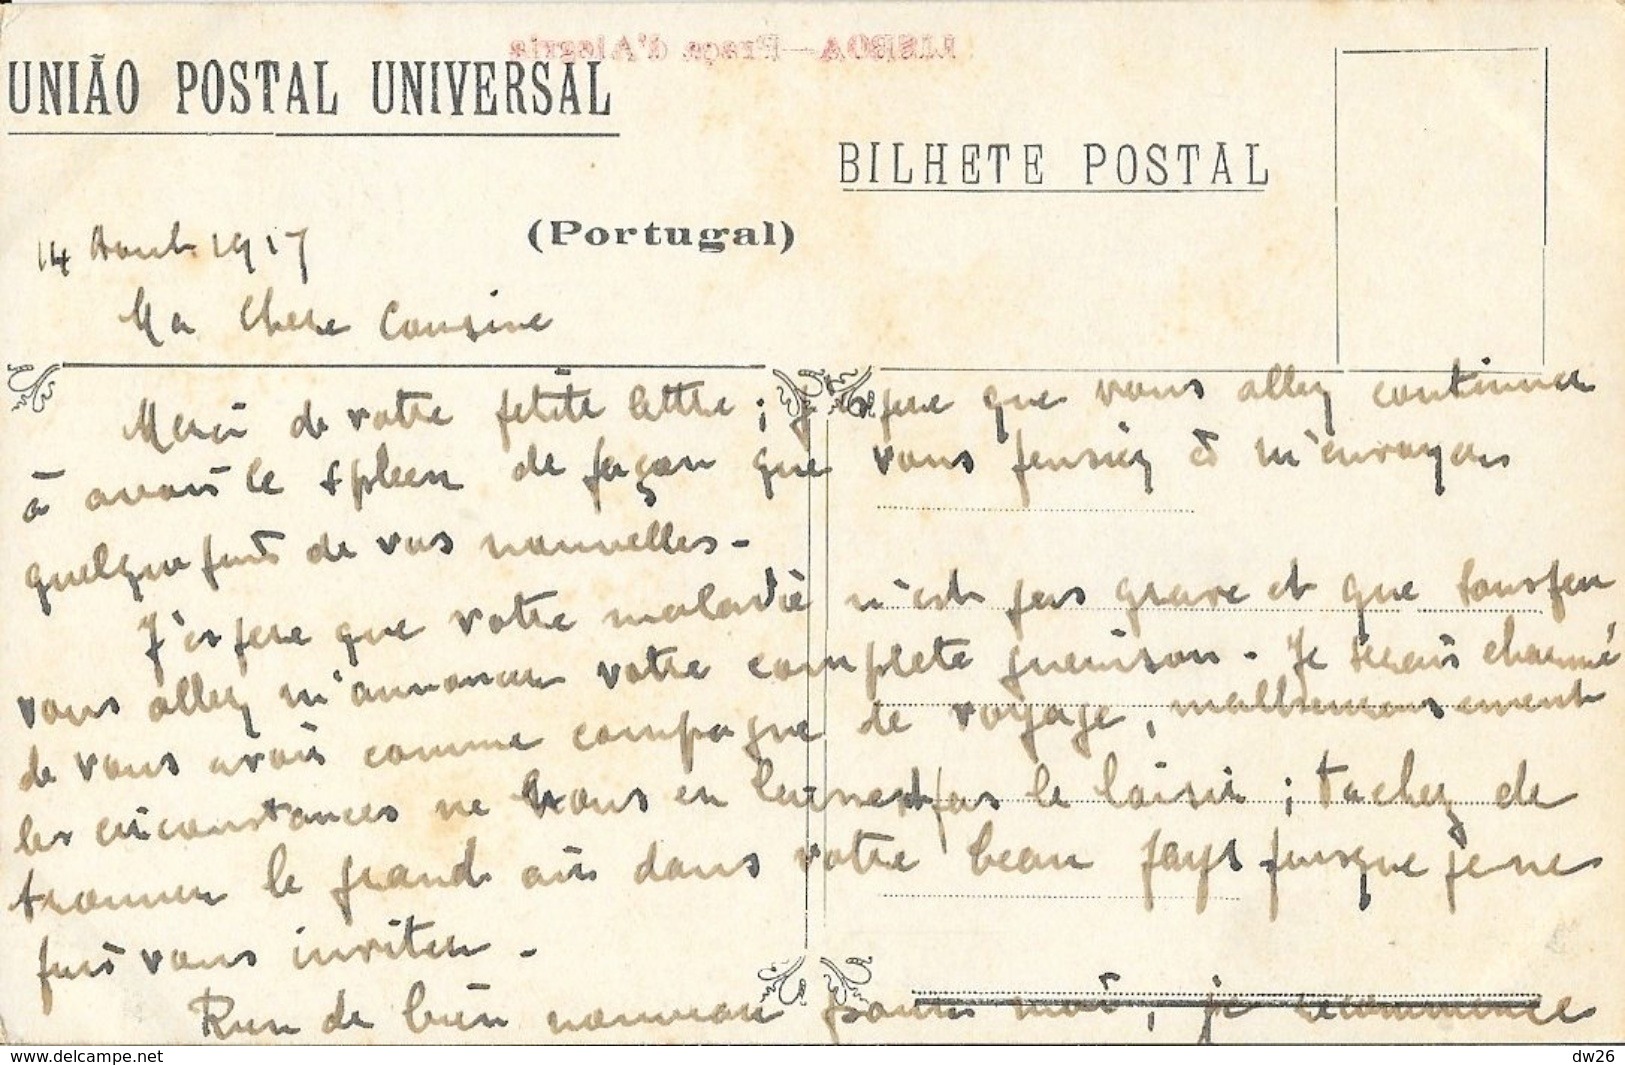 LISBOA—Praça d'Alegria
UNIÃO POSTAL UNIVERSAL
BILHETE POSTAL
(Portugal)
14 Aout 1917
Ma Chere Cousine
Merci de votre petite lettre ; j'espere que vous allez continuer
à avoir le spleen de façon que vous pensiez à m'envoyer
quelque fois de vos nouvelles -
J'espere que votre maladie n'est pas grave et que sous peu
vous allez m'annoncer votre complete guerison - Je serais charmé
de vous avoir comme compagne de voyage, malheureusement
les circonstances ne nous en laissent pas le loisir ; tachez de
trouver le grand air dans votre beau pays puisque je ne
puis vous inviter -
Rien de bien nouveau pour moi, je recommence
dw26